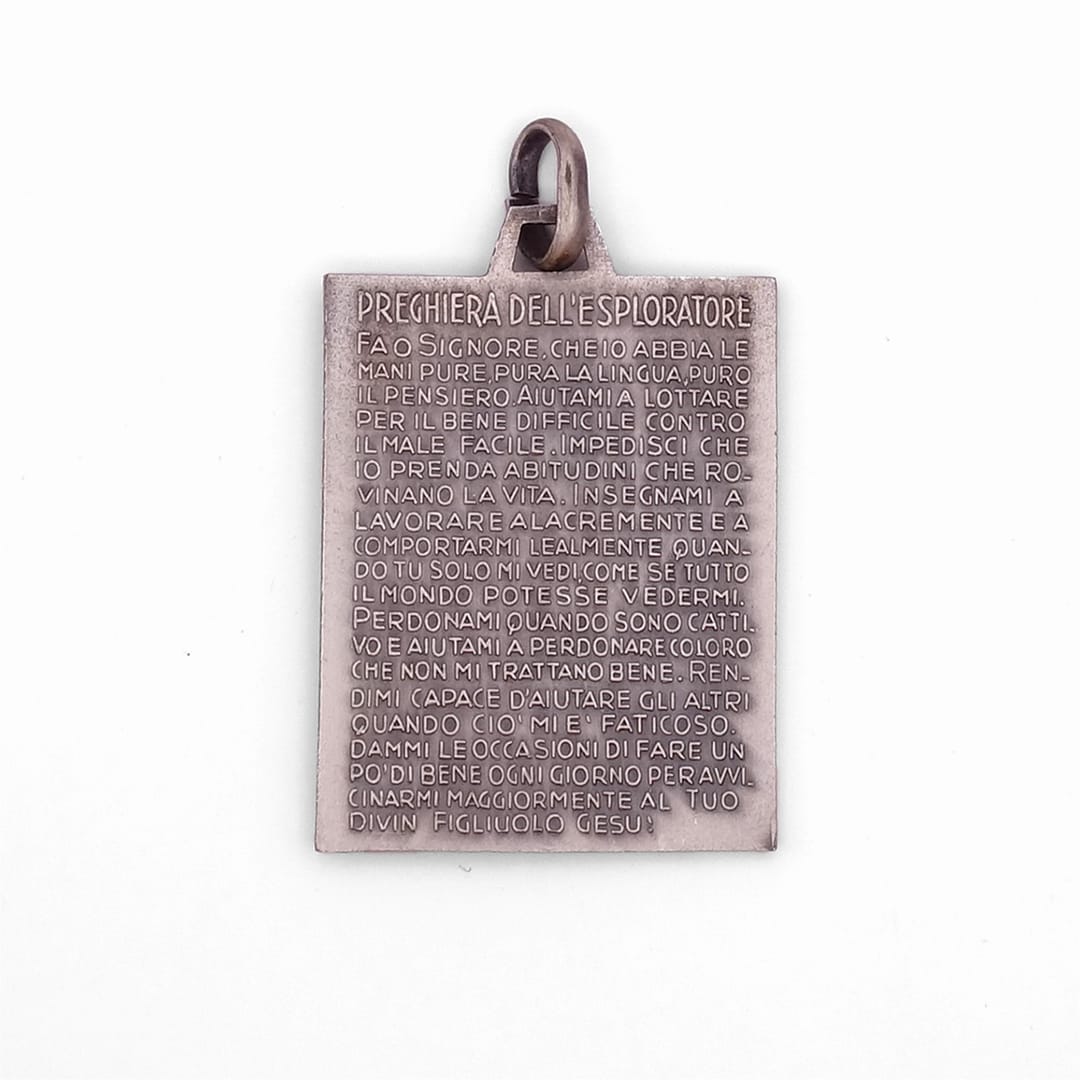 PREGHIERA DELL'ESPLORATORE
FA O SIGNORE, CHE IO ABBIA LE
MANI PURE, PURA LA LINGUA, PURO
IL PENSIERO. AIUTAMI A LOTTARE
PER IL BENE DIFFICILE CONTRO
IL MALE FACILE. IMPEDISCI CHE
IO PRENDA ABITUDINI CHE RO-
VINANO LA VITA. INSEGNAMI A
LAVORARE ALACREMENTE E A
COMPORTARMI LEALMENTE QUAN-
DO TU SOLO MI VEDI, COME SE TUTTO
IL MONDO POTESSE VEDERMI.
PERDONAMI QUANDO SONO CATTI-
VO E AIUTAMI A PERDONARE COLORO
CHE NON MI TRATTANO BENE. REN-
DIMI CAPACE D'AIUTARE GLI ALTRI
QUANDO CIO' MI E' FATICOSO.
DAMMI LE OCCASIONI DI FARE UN
PO' DI BENE OGNI GIORNO PER AVVI-
CINARMI MAGGIORMENTE AL TUO
DIVIN FIGLIUOLO GESU'.